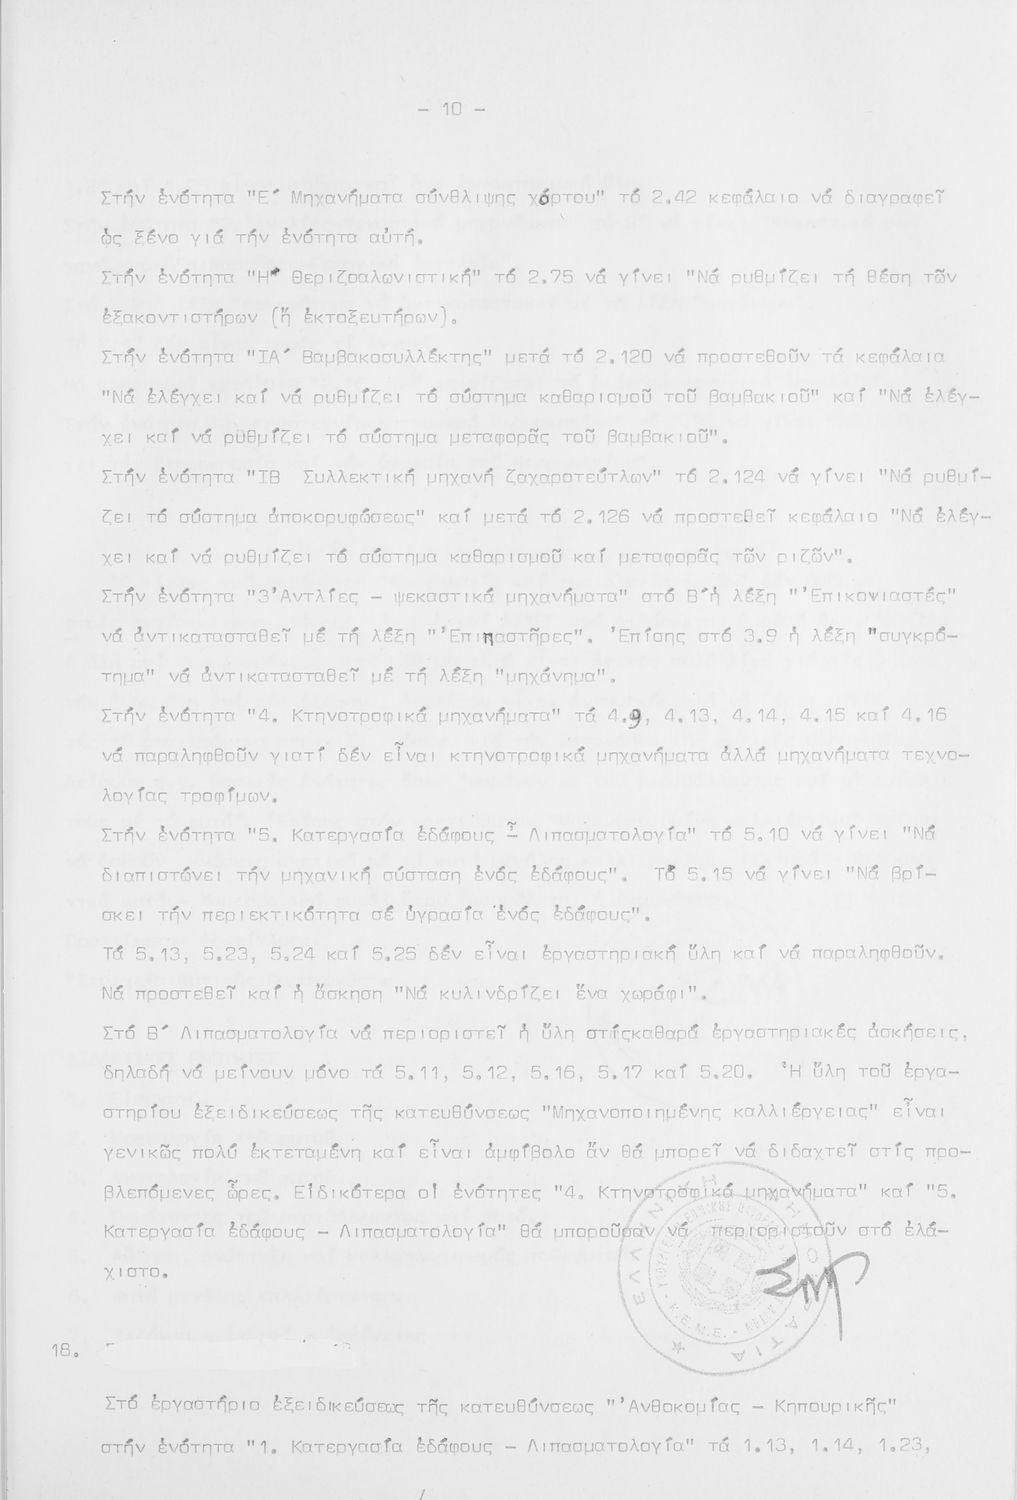 - 10 -
Στήν ἑνότητα "Ε΄ Μηχανήματα σύνθλιψης χόρτου" τό 2.42 κεφάλαιο νά διαγραφεῖ
ὡς ξένο γιά τήν ἑνότητα αὐτή.
Στήν ἑνότητα "Η΄ Θεριζοαλωνιστική" τό 2.75 νά γίνει "Νά ρυθμίζει τή θέση τῶν
ἐξακοντιστήρων (ἤ ἐκτοξευτήρων).
Στήν ἑνότητα "ΙΑ΄ Βαμβακοσυλλέκτης" μετά τό 2.120 νά προστεθοῦν τά κεφάλαια
"Νά ἐλέγχει καί νά ρυθμίζει τό σύστημα καθαρισμοῦ τοῦ βαμβακιοῦ" καί "Νά ἐλέγ-
χει καί νά ρυθμίζει τό σύστημα μεταφορᾶς τοῦ βαμβακιοῦ".
Στήν ἑνότητα "ΙΒ Συλλεκτική μηχανή ζαχαροτεύτλων" τό 2.124 νά γίνει "Νά ρυθμί-
ζει τό σύστημα ἀποκορυφώσεως" καί μετά τό 2.126 νά προστεθεῖ κεφάλαιο "Νά ἐλέγ-
χει καί νά ρυθμίζει τό σύστημα καθαρισμοῦ καί μεταφορᾶς τῶν ριζῶν".
Στήν ἑνότητα "3'Αντλίες - ψεκαστικά μηχανήματα" στό Β΄ἡ λέξη "'Επικονιαστές"
νά ἀντικατασταθεῖ μέ τή λέξη "'Επιπαστῆρες". 'Επίσης στό 3.9 ἡ λέξη "συγκρό-
τημα" νά ἀντικατασταθεῖ μέ τή λέξη "μηχάνημα".
Στήν ἑνότητα "4. Κτηνοτροφικά μηχανήματα" τά 4.9, 4.13, 4.14, 4.15 καί 4.16
νά παραληφθοῦν γιατί δέν εἶναι κτηνοτροφικά μηχανήματα ἀλλά μηχανήματα τεχνο-
λογίας τροφίμων.
Στήν ἑνότητα "5. Κατεργασία ἐδάφους - Λιπασματολογία" τό 5.10 νά γίνει "Νά
διαπιστώνει τήν μηχανική σύσταση ἑνός ἐδάφους". Τό 5.15 νά γίνει "Νά βρί-
σκει τήν περιεκτικότητα σέ ὑγρασία ἑνός ἐδάφους".
Τά 5.13, 5.23, 5.24 καί 5.25 δέν εἶναι ἐργαστηριακή ὕλη καί νά παραληφθοῦν.
Νά προστεθεῖ καί ἡ ἄσκηση "Νά κυλινδρίζει ἕνα χωράφι".
Στό Β΄ Λιπασματολογία νά περιοριστεῖ ἡ ὕλη στίςκαθαρά ἐργαστηριακές ἀσκήσεις,
δηλαδή νά μείνουν μόνο τά 5.11, 5.12, 5.16, 5.17 καί 5.20. Ἡ ὕλη τοῦ ἐργα-
στηρίου ἐξειδικεύσεως τῆς κατευθύνσεως "Μηχανοποιημένης καλλιέργειας" εἶναι
γενικῶς πολύ ἐκτεταμένη καί εἶναι ἀμφίβολο ἄν θά μπορεῖ νά διδαχτεῖ στίς προ-
βλεπόμενες ὧρες. Εἰδικότερα οἱ ἑνότητες "4. Κτηνοτροφικά μηχανήματα" καί "5.
Κατεργασία ἐδάφους - Λιπασματολογία" θά μποροῦσαν νά περιοριστοῦν στό ἐλά-
χιστο.
ΕΛΛΗΝΙΚΗ ΔΗΜΟΚΡΑΤΙΑ
Κ.Ε.Μ.Ε.
18.
Στό ἐργαστήριο ἐξειδικεύσεως τῆς κατευθύνσεως "'Ανθοκομίας - Κηπουρικῆς"
στήν ἑνότητα "1. Κατεργασία ἐδάφους - Λιπασματολογία" τά 1.13, 1.14, 1.23,